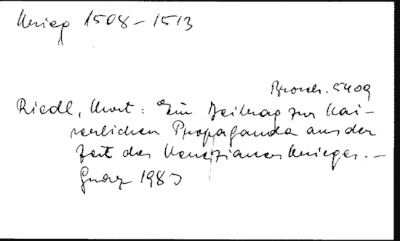 Krieg 1508-1513
Brosch. 5409
Riedl, Kurt: Ein Beitrag zur Kai-
serlichen Propaganda aus der
Zeit des Venezianerkrieges.-
Graz 1983